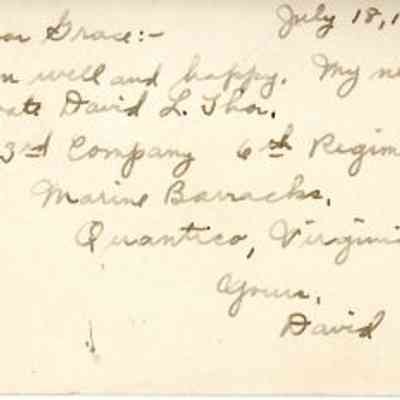 July 18, 1
ar Grace:-
m well and happy. My ne
vate David L. Thor.
3rd Company 6th Regim
Marine Barracks,
Quantico, Virginia
Yours,
David